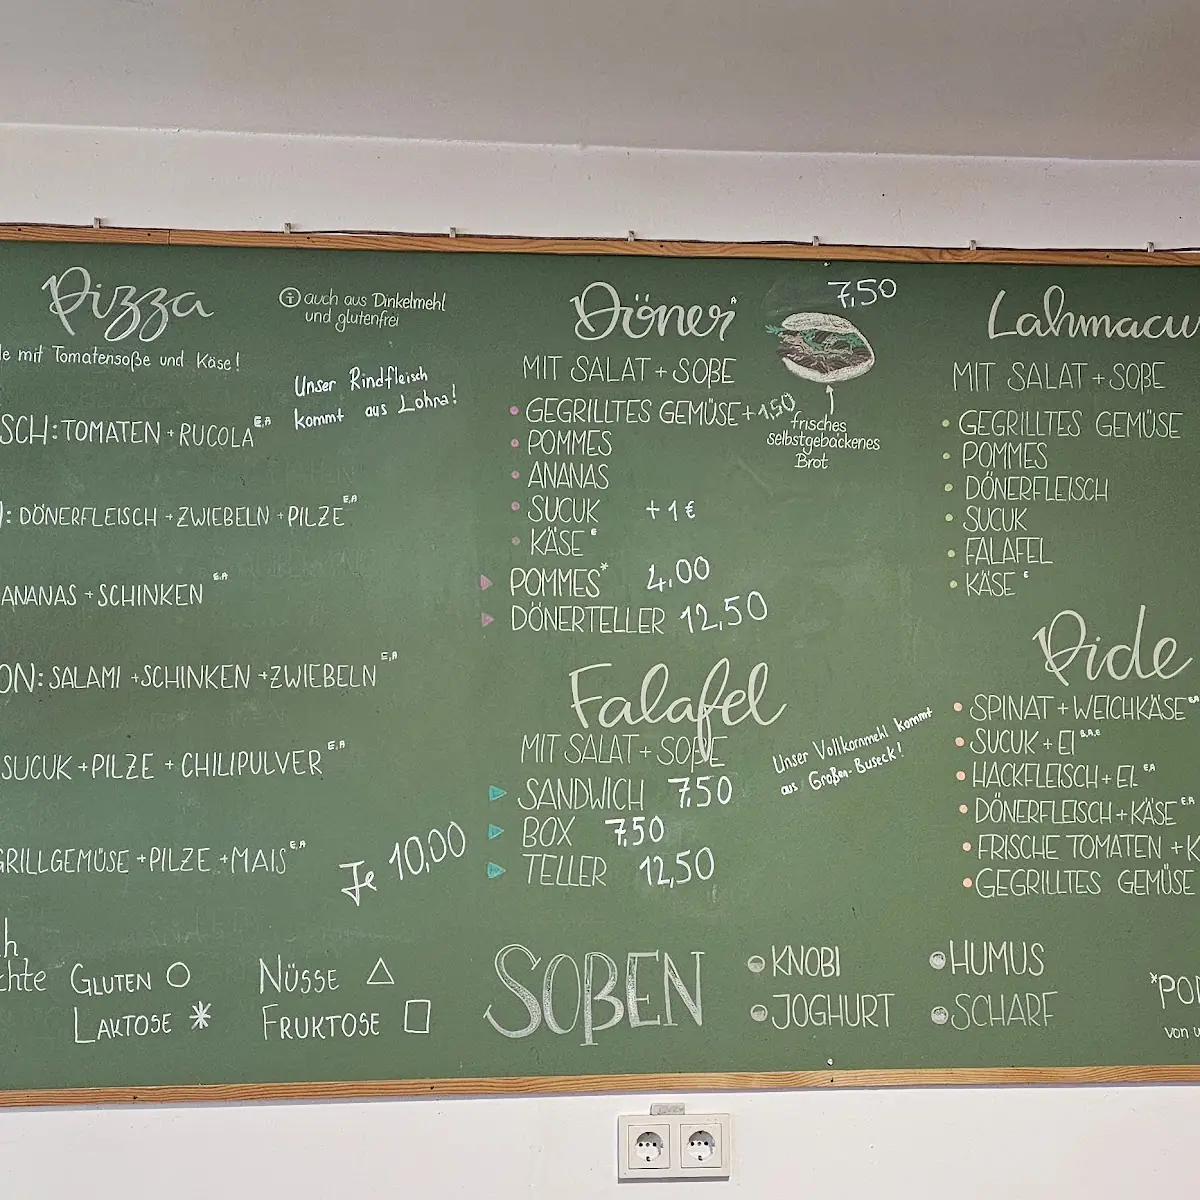 Pizza
ⓘ auch aus Dinkelmehl
und glutenfrei
mit Tomatensoße und Käse!
Unser Rindfleisch
kommt aus Lohra!
SCH: TOMATEN + RUCOLA E,A
: DÖNERFLEISCH + ZWIEBELN + PILZE E,A
ANANAS + SCHINKEN E,A
ON: SALAMI + SCHINKEN + ZWIEBELN E,A
SUCUK + PILZE + CHILIPULVER E,A
GRILLGEMÜSE + PILZE + MAIS E,A
Je 10,00
GLUTEN ○
NÜSSE △
LAKTOSE *
FRUKTOSE □
Döner A
7,50
MIT SALAT + SOßE
GEGRILLTES GEMÜSE +1,50
POMMES
ANANAS
SUCUK +1€
KÄSE E
POMMES* 4,00
DÖNERTELLER 12,50
frisches
selbstgebackenes
Brot
Falafel
MIT SALAT + SOßE
SANDWICH 7,50
BOX 7,50
TELLER 12,50
Unser Vollkornmehl kommt
aus Großen-Buseck!
SOßEN
KNOBI
JOGHURT
HUMUS
SCHARF
Lahmacu
MIT SALAT + SOßE
GEGRILLTES GEMÜSE
POMMES
DÖNERFLEISCH
SUCUK
FALAFEL
KÄSE E
Pide
SPINAT + WEICHKÄSE
SUCUK + EI
HACKFLEISCH + EI E,A
DÖNERFLEISCH + KÄSE E,A
FRISCHE TOMATEN + K
GEGRILLTES GEMÜSE
*PO
von u